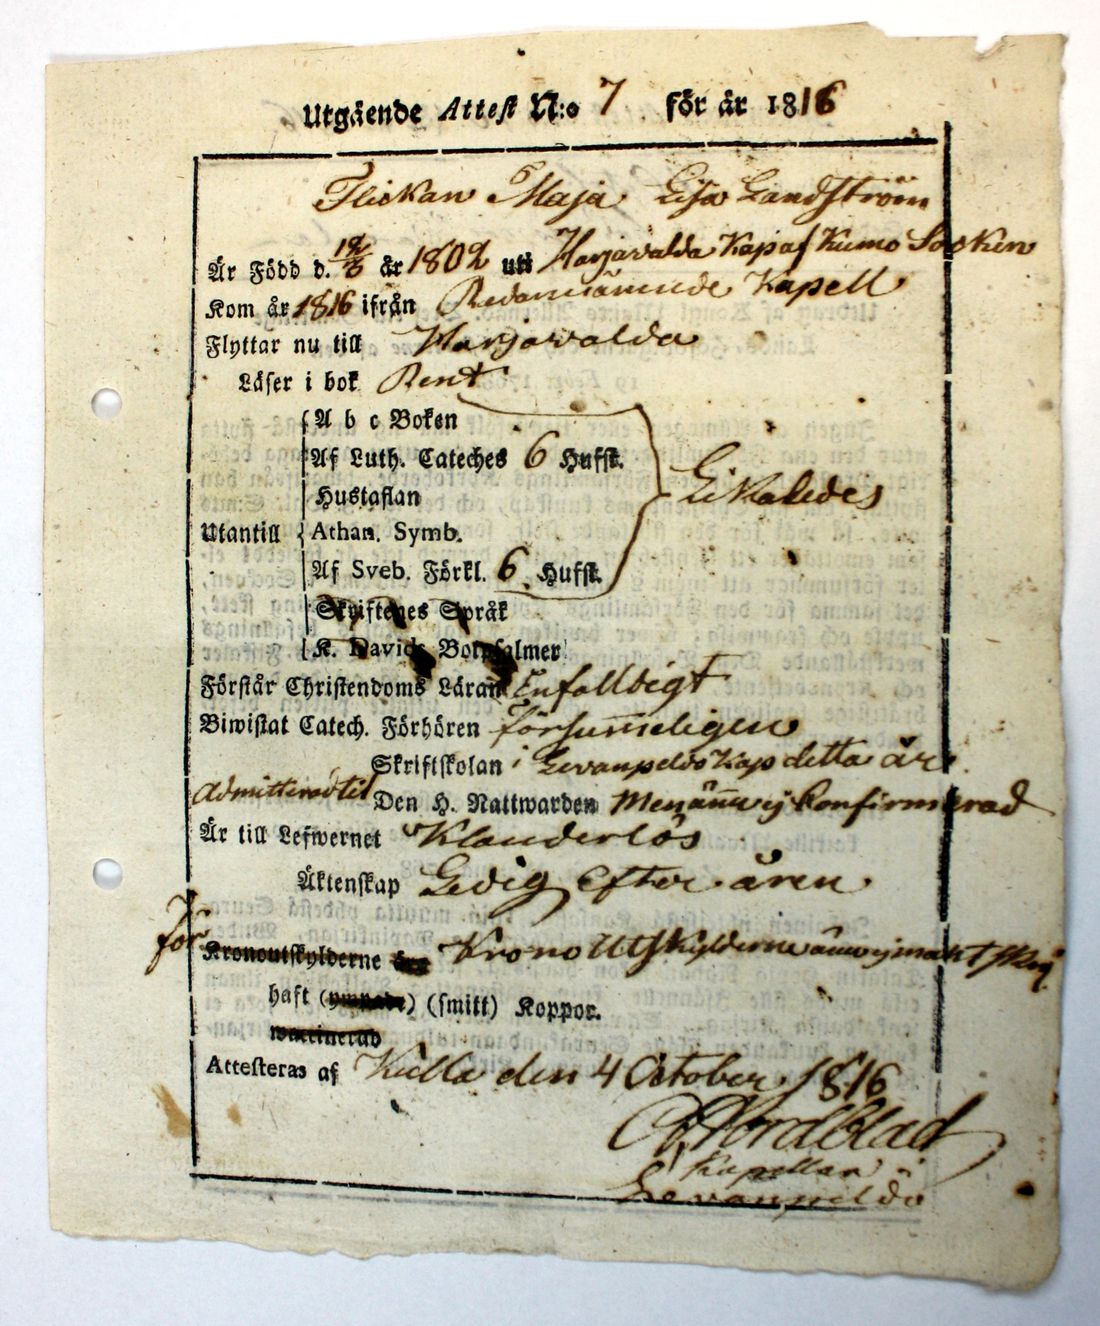 Utgående Attest N:o 7 för år 1816
Flickan Maja Lisa Landström
Är Född d. 12/8 år 1802 uti Harjavalda Kap af Kumo Socken
Kom år 1816 ifrån Kapell
Flyttar nu till Harjavalda
Läser i bok Rent
A b c Boken
Af Luth. Cateches 6 Hufst.
Hustaflan
Likaledes
Utantill Athan. Symb.
Af Sveb. Förkl. 6 Hufst.
Skriftenes Språk
K. Davids Botpsalmer
Förstår Christendoms Läran Enfalldigt
Biwistat Catech. Förhören försum̄eligen
Skriftskolan i Levanpeldo Kap detta år
Admitterad til Den H. Nattwarden Men än̄u ej Confirmerad
Är till Lefwernet Klanderlös
Äktenskap Ledig Efter åren
för
Kronoutskylderne Krono Utskylderne än̄u ej
haft (ympade) (smitt) Koppor.
waccinerad
Attesteras af Kulla den 4 October 1816
Nordblad
Kapellan i
Levanpeldo